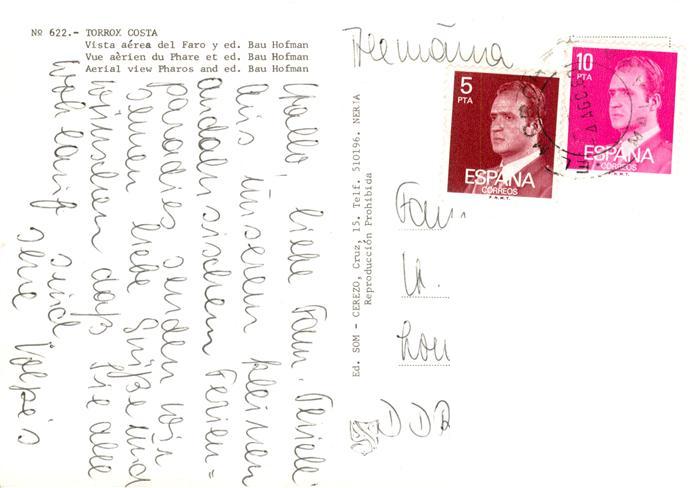 Nº 622.- TORROX COSTA
Vista aérea del Faro y ed. Bau Hofman
Vue aèrien du Phare et ed. Bau Hofman
Aerial view Pharos and ed. Bau Hofman
Hallo, liebe Fam.
aus unserem kleinen
andalusischem Ferien=
paradies senden wir
Ihnen liebe Grüße und
wünschen daß Sie alle
wohlauf sind
Ihre
Ed. SOM - CEREZO, Cruz, 15. Telf. 510196. NERJA
Reproducción Prohibida
Alemania
5
PTA
ESPAÑA
CORREOS
F.N.M.T.
10
PTA
ESPAÑA
CORREOS
F.N.M.T.
Fam
DDR